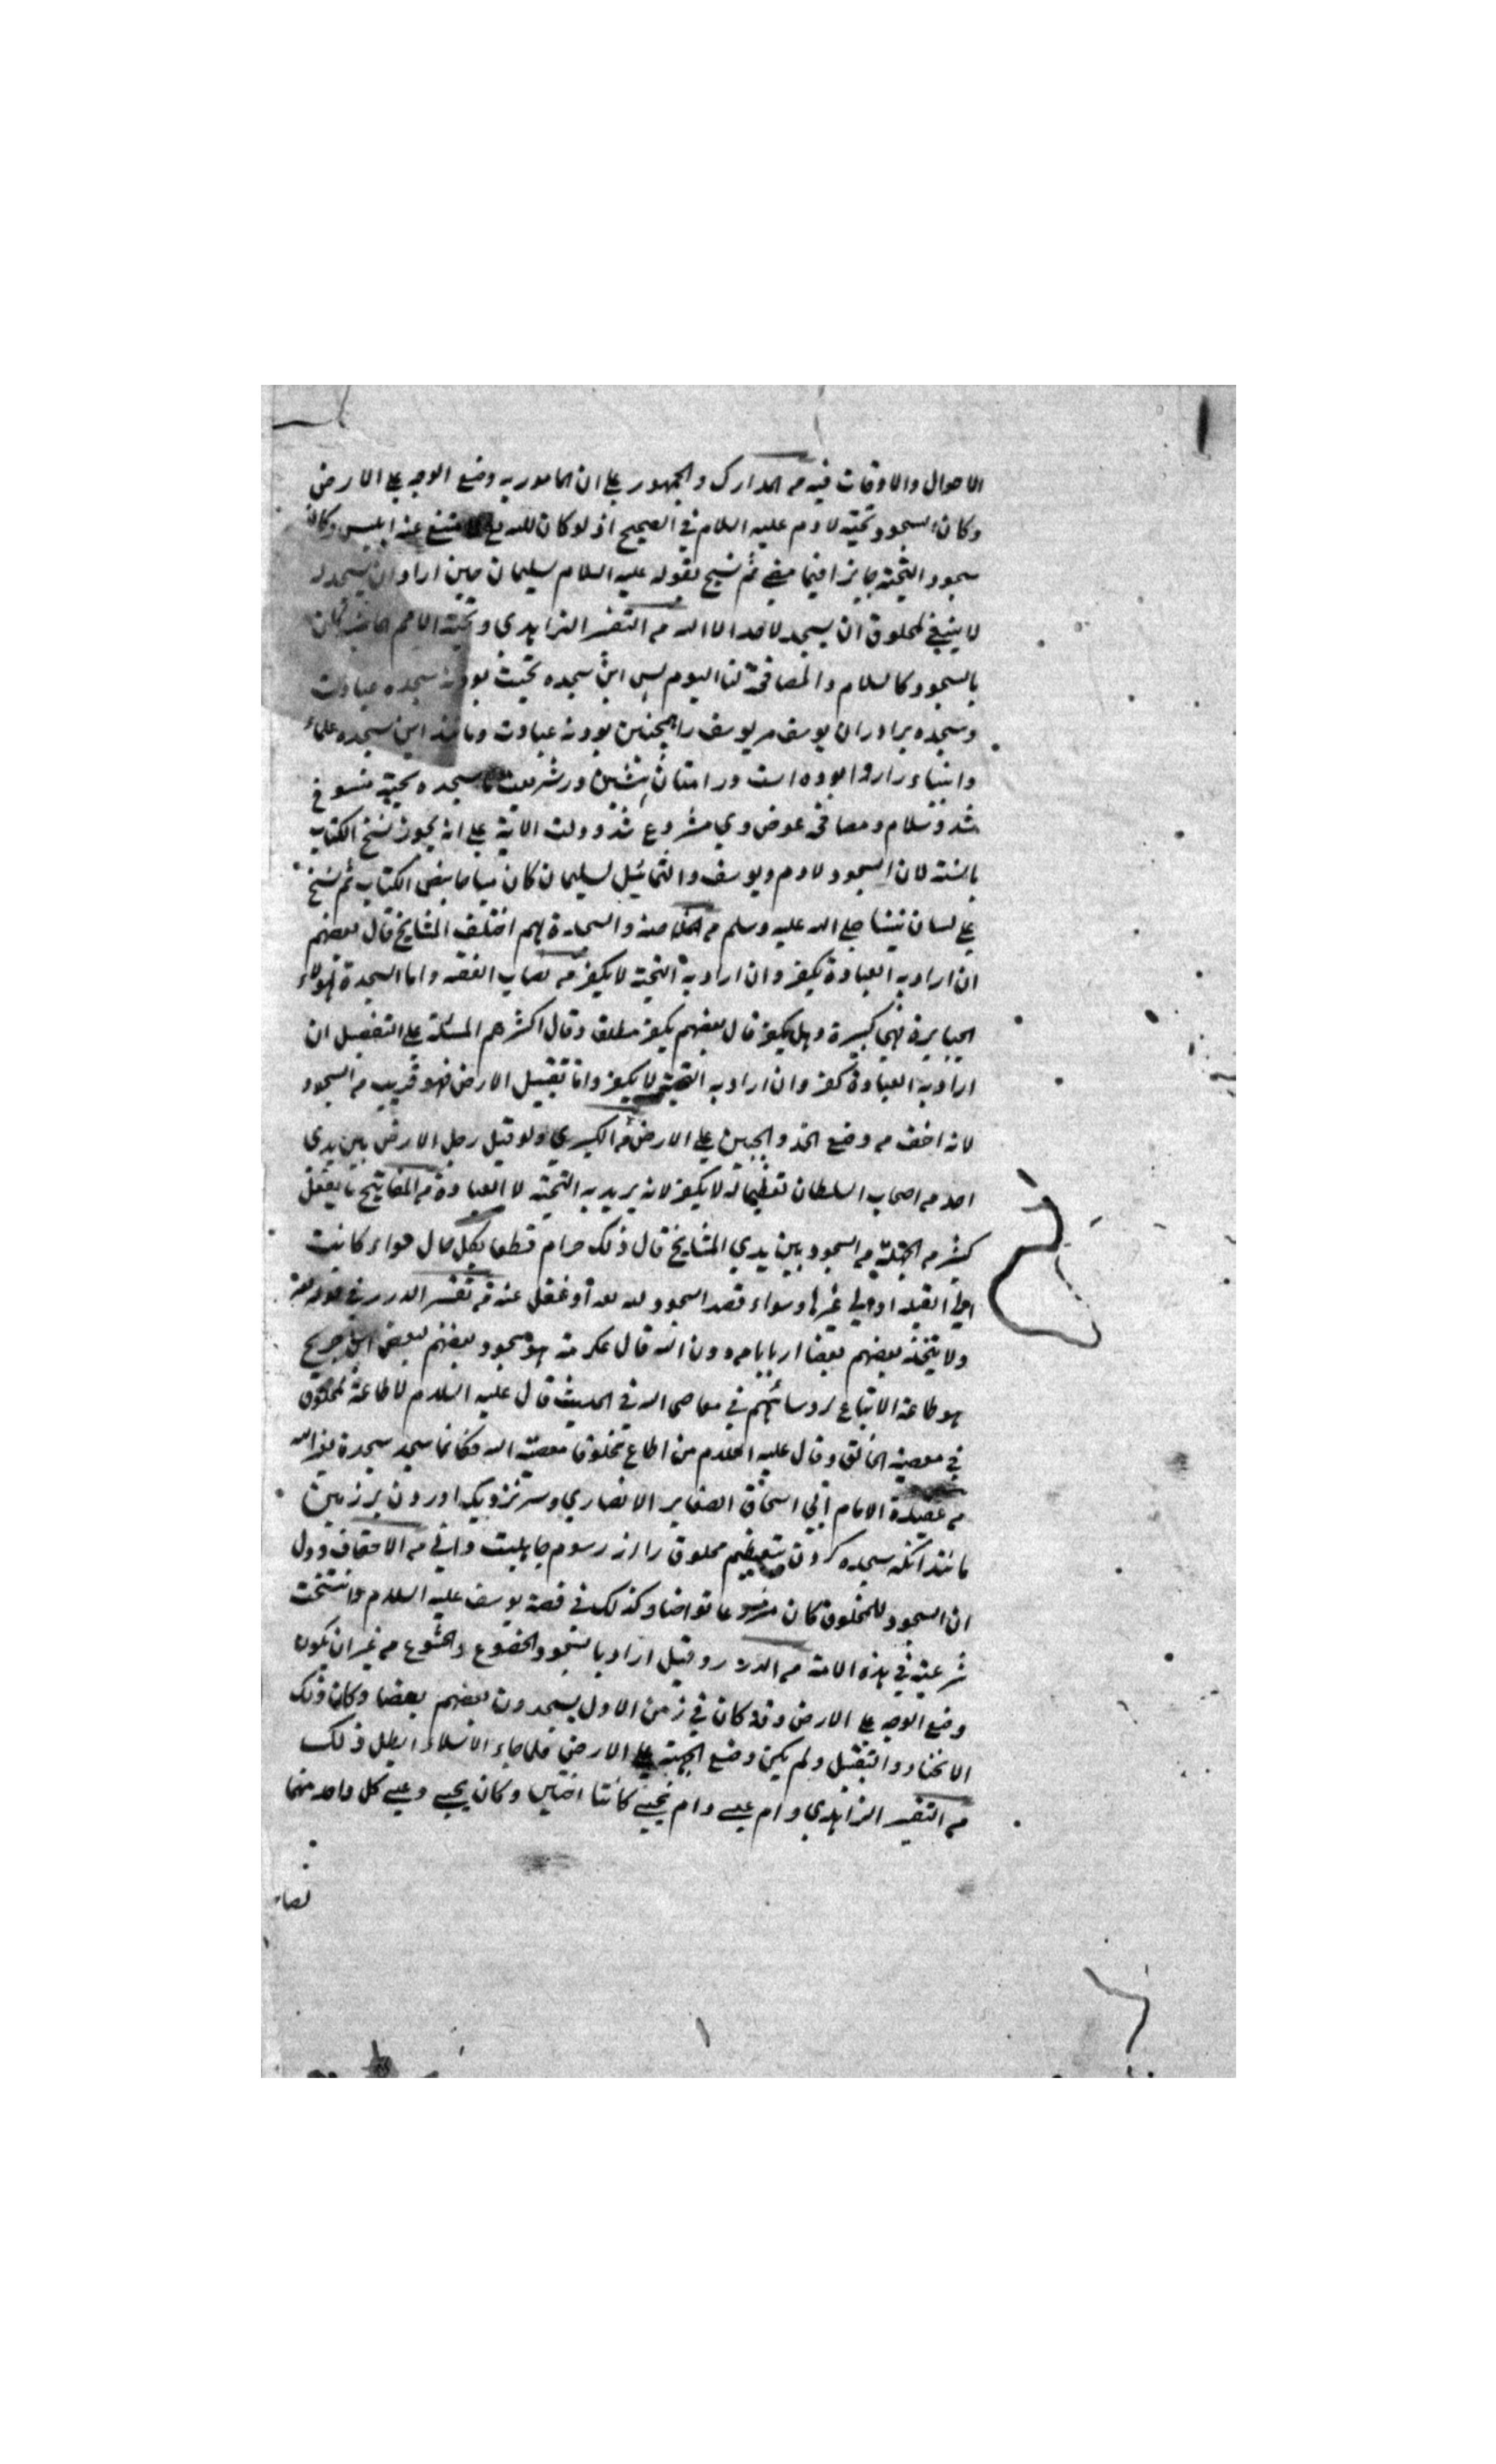 الاحوال والاوقات فيه من المدارك والجمهور علي ان المامور به وضع الوجه علي الارض
وكان السجود تحية لادم عليه السلام في الصحيح اذ لو كان لله تع لما امتنع عنه ابليس وكان
سجود التحية جايزا فيما مضي ثم نسخ بقوله عليه السلام لسليمان حين اراد ان يسجد له
لا ينبغي لمخلوق ان يسجد لاحد الا الله من التفسير الزاهدي وتحية الامم الماضية كان
بالسجود كالسلام والمصافحة لنا اليوم پس اين سجده تحيت بود نه سجده عبادت
وسجده برادران يوسف مر يوسف را همچنين بود نه عبادت ومانند اين سجده علماء
وانبياء را روا بوده است در امتان پيشين در شريعت ما سجده تحية منسوخ
شد وسلام ومصافحه عوض وي مشروع شد ودلت الاية علي انه يجوز نسخ الكتاب
بالسنة لان السجود لادم ويوسف والتماثيل لسليمان كان مباحا بنص الكتاب ثم نسخ
علي لسان نبينا صلي الله عليه وسلم من الخلاصة والسجدة لهم اختلف المشايخ قال بعضهم
ان اراد به العبادة يكفر وان اراد به التحية لا يكفر من نصاب الفقه واما السجدة لهولاء
الجبابرة فهي كبيرة وهل يكفر قال بعضهم يكفر مطلقا وقال اكثرهم المسئلة علي التفصيل ان
اراد به العبادة كفر وان اراد به التحية لا يكفر واما تقبيل الارض فهو قريب من السجود
لانه اخف من وضع الخد والجبين علي الارض من الكبري ولو قبل رجل الارض بين يدي
احد من اصحاب السلطان تعظيما له لا يكفر لانه يريد به التحية لا العبادة من المفاتيح ما يفعل
كثير من الجهلة من السجود بين يدي المشايخ قال ذلك حرام قطعا بكل حال سواء كانت
الي القبلة او الي غيرها وسواء قصد السجود لله تعه او غفل عنه من تفسير الدرر في قوله تع
ولا يتخذ بعضهم بعضا اربابا من دون الله قال عكرمة هو سجود بعضهم لبعض ابن جريج
هو طاعة الاتباع لروسائهم في معاصي الله في الحديث قال عليه السلام لا طاعة لمخلوق
في معصية الخالق وقال عليه السلام من اطاع مخلوقا معصية الله فكانما سجد سجدة لغير الله
من عقيدة الامام ابي اسحاق الصفار الانصاري وسر نزديک اوردن بر زمين
مانند آنكه سجده كردن بتعظيم مخلوق را از رسوم جاهليت وافي من الاحقاف ودل
ان السجود للمخلوق كان مشروعا تواضعا وكذلك في قصة يوسف عليه السلام وانتسخت
شرعيته في هذه الامة من الدرر وقيل اراد بالسجود الخضوع والخشوع من غير ان يكون
وضع الوجه علي الارض وقد كان في زمن الاول يسجدون بعضهم بعضا وكان ذلك
الانحناء والتقبيل ولم يكن وضع الجبهة علي الارض فلما جاء الاسلام ابطل ذلك
من التفسير الزاهدي وام عيسے وام يحيے كانتا اختين وكان يحيے وعيسے كل واحد منهما